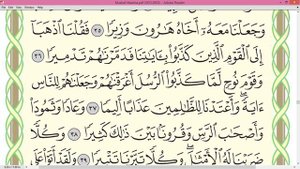 (SECURED) - Adobe Reader
وَجَعَلْنَا مَعَهُۥٓ أَخَاهُ هَٰرُونَ وَزِيرًا ٣٥ فَقُلْنَا ٱذْهَبَآ
إِلَى ٱلْقَوْمِ ٱلَّذِينَ كَذَّبُوا۟ بِـَٔايَٰتِنَا فَدَمَّرْنَٰهُمْ تَدْمِيرًا ٣٦
وَقَوْمَ نُوحٍ لَّمَّا كَذَّبُوا۟ ٱلرُّسُلَ أَغْرَقْنَٰهُمْ وَجَعَلْنَٰهُمْ لِلنَّاسِ
ءَايَةً ۖ وَأَعْتَدْنَا لِلظَّٰلِمِينَ عَذَابًا أَلِيمًا ٣٧ وَعَادًا وَثَمُودَا۟
وَأَصْحَٰبَ ٱلرَّسِّ وَقُرُونًۢا بَيْنَ ذَٰلِكَ كَثِيرًا ٣٨ وَكُلًّا
ضَرَبْنَا لَهُ ٱلْأَمْثَٰلَ ۖ وَكُلًّا تَبَّرْنَا تَتْبِيرًا ٣٩ وَلَقَدْ أَتَوْا۟ عَلَى